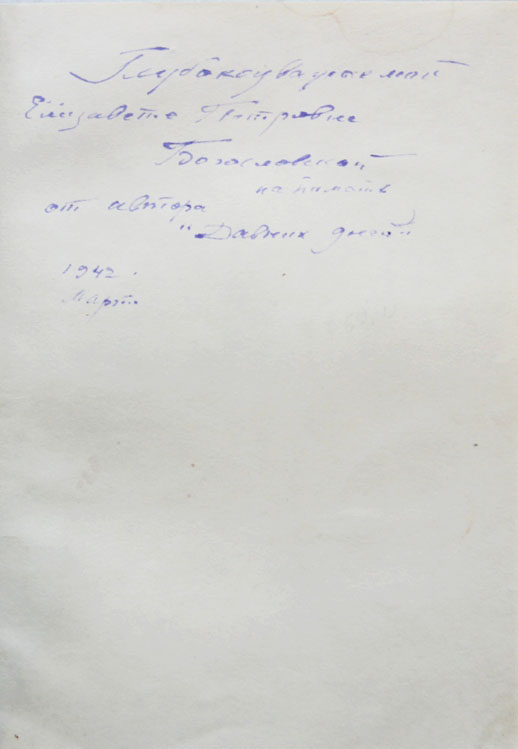 Глубокоуважаемой
Елизавете Петровне
Богословской
на память
от автора
"Давних дней"
1942.
Март